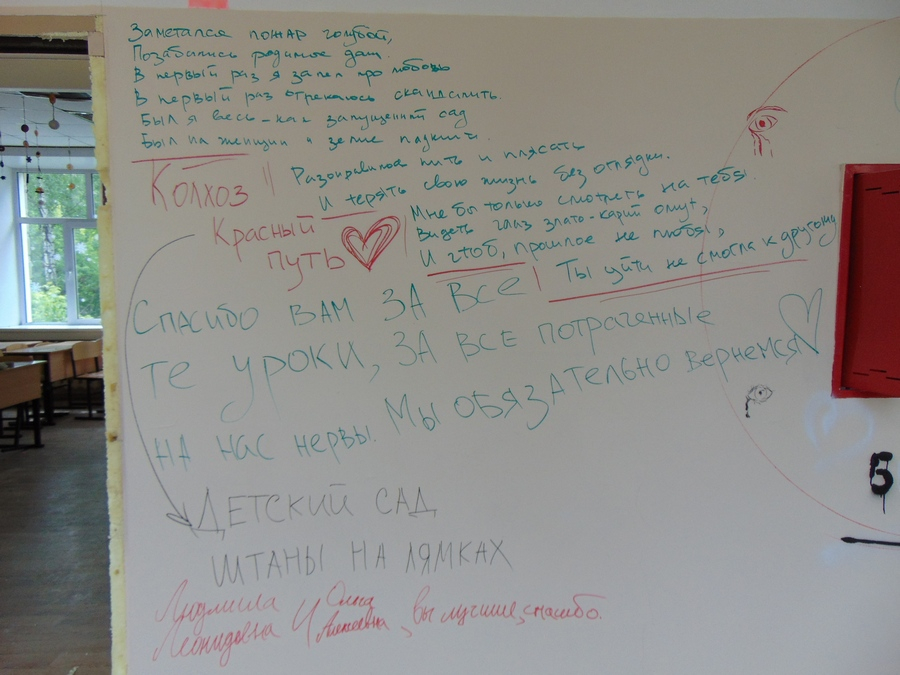 Заметался пожар голубой,
Позабылись родимое дали.
В первый раз я запел про любовь
В первый раз отрекаюсь скандалить.
Был я весь - как запущенный сад
Был на женщин и зелие падкий.
Разонравилось пить и плясать
И терять свою жизнь без оглядки.
Мне бы только смотреть на тебя.
Видеть глаз злато-карий омут,
И чтоб, прошлое не любя,
Ты уйти не смогла к другому
Колхоз
Красный
путь
Спасибо вам за все
те уроки, за все потраченные
на нас нервы. Мы обязательно вернемся
Детский сад
штаны на лямках
Людмила Леонидовна и Ольга Алексеевна, вы лучшие, спасибо.
5